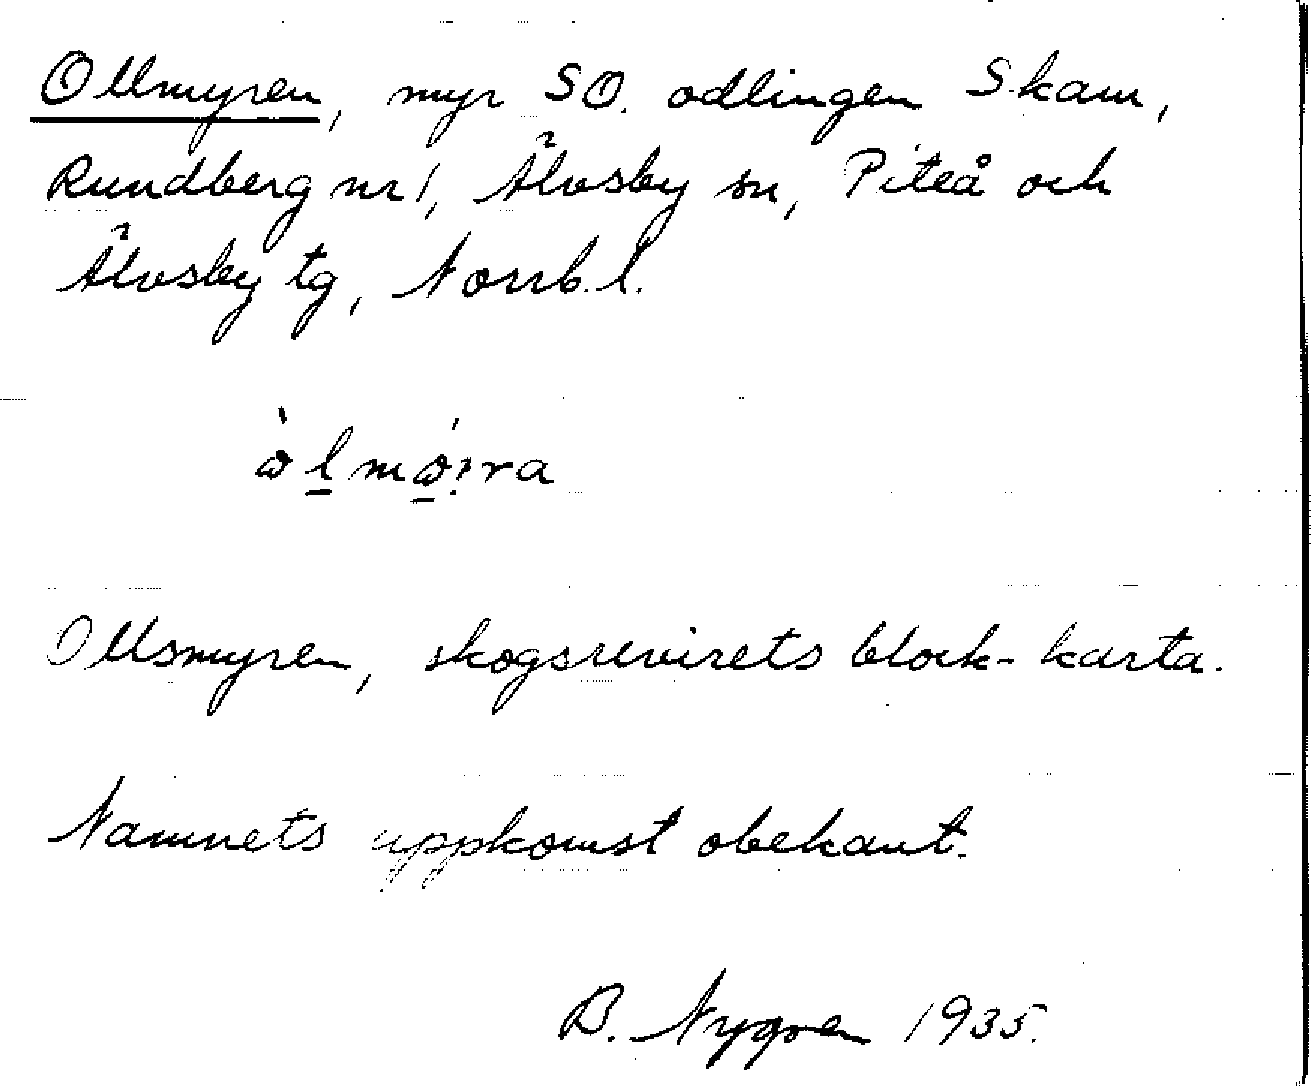 Ollmyren, myr SO. odlingen Skam,
Rundberg nr 1, Älvsby sn, Piteå och
Älvsby tg, Norrb. l.
Ollsmyren, skogsrevirets block-karta.
Namnets uppkomst obekant.
B. Nygren 1935.